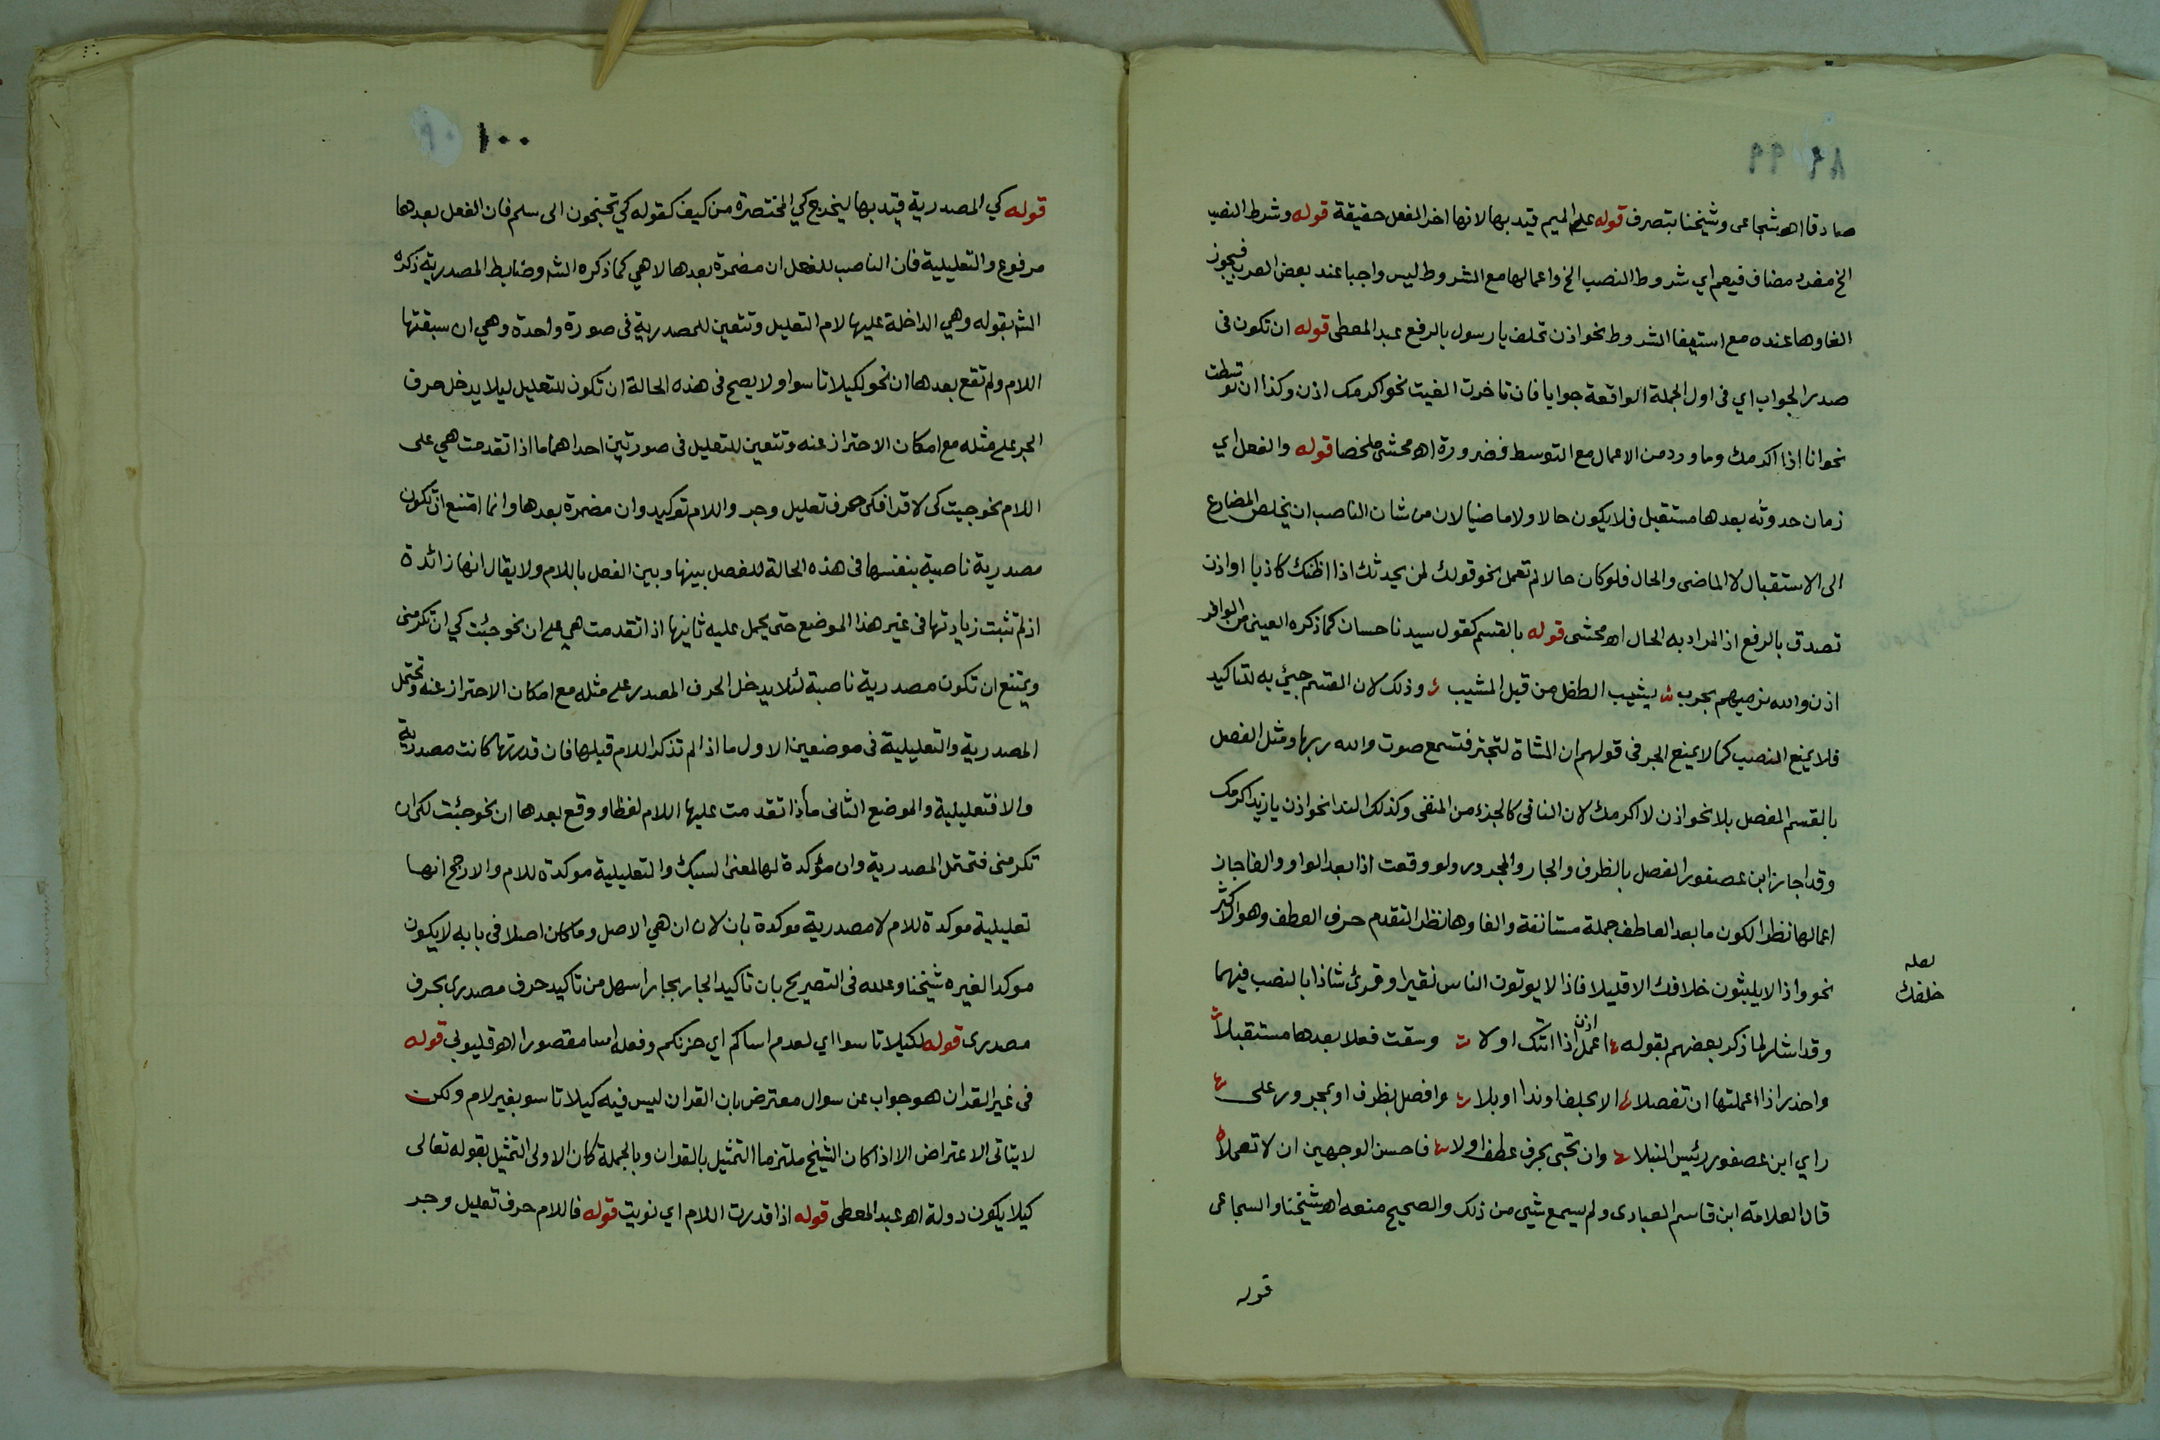 ٨٩ ٩٩
صادقا اهـ شجاعى وشيخنا بتصرف قوله على الميم قيد بها لانها اخر الفعل حقيقة قوله وشرط النصب
الخ مفرد مضاف فيعم اي شروط النصب الخ واعمالها مع الشروط ليس واجبا عند بعض العرب فيجوز
الغاوها عنده مع استيفا الشروط نحو اذن تحلف يا رسول بالرفع عبد المعطى قوله ان تكون فى
صدر الجواب اي فى اول الجملة الواقعة جوابا فان تاخرت الغيت نحو اكرمك اذن وكذا ان توسطت
نحو انا اذا اكرمك وما ورد من الاعمال مع التوسط فضرورة اهـ محشى ملخصا قوله والفعل اي
زمان حدوثه بعدها مستقبل فلا يكون حالا ولا ماضيا لان من شان الناصب ان يخلص المضارع
الى الاستقبال لا الماضى والحال فلو كان حالا لم تعمل نحو قولك لمن يحدثك اذا اظنك كاذبا او اذن
تصدق بالرفع اذ المراد به الحال اهـ محشى قوله بالقسم كقول سيدنا حسان كما ذكره العينى من الوافر
اذن والله نرميهم بحرب يشيب الطفل من قبل المشيب وذلك لان القسم جيئ به لتاكيد
فلا يمنع النصب كما لا يمنع الجر فى قولهم ان الشاة لتجتر فتسمع صوت والله ربها ومثل الفصل
بالقسم الفصل بلا نحو اذن لا اكرمك لان النافى كالجزء من المنفى وكذلك الندا نحو اذن يا زيد اكرمك
وقد اجاز ابن عصفور الفصل بالظرف والجار والمجرور ولو وقعت اذا بعد الواو والفا جاز
اعمالها نظرا لكون ما بعد العاطف جملة مستانفة والغاوها نظرا لتقدم حرف العطف وهو الاكثر
نحو واذا لا يلبثون خلافك الا قليلا فاذا لا يوتون الناس نقيرا وقرئ شاذا بالنصب فيهما
لعله
خلفك
وقد اشار لما ذكر بعضهم بقوله اعمل اذن اذا اتتك اولا وسقت فعلا بعدها مستقبلا
واحذر اذا اعملتها ان تفصلا الا بحلف او ندا او بلا وافصل بظرف او بمجرور على
راي ابن عصفور رئيس النبلا وان تجى بحرف عطف اولا فاحسن الوجهين ان لا تعملا
قال العلامة ابن قاسم العبادى ولم يسمع شيى من ذلك والصحيح منعه اهـ شيخنا والسجاعى
قوله
١٠٠
قوله كي المصدرية قيد بها ليخرج كي المختصرة من كيف كقوله كي تجنحون الى سلم فان الفعل بعدها
مرفوع والتعليلية فان الناصب للفعل ان مضمرة بعدها لا هي كما ذكره الشـ وضابط المصدرية ذكره
الشـ بقوله وهي الداخلة عليها لام التعليل وتتعين للمصدرية فى صورة واحدة وهي ان سبقتها
اللام ولم تقع بعدها ان نحو لكيلا تاسوا ولا يصح فى هذه الحالة ان تكون للتعليل ليلا يدخل حرف
الجر على مثله مع امكان الاحتراز عنه وتتعين للتعليل فى صورتين احداهما اذا تقدمت هي على
اللام نحو جيت كى لاقرا فكى حرف تعليل وجر واللام توكيد وان مضمرة بعدها وانما امتنع ان تكون
مصدرية ناصبة بنفسها فى هذه الحالة للفصل بينها وبين الفعل باللام ولا يقال انها زائدة
اذ لم تثبت زيادتها فى غير هذا الموضع حتى يحمل عليه ثانيها اذا تقدمت هي على ان نحو جئت كي ان تكرمنى
ويمتنع ان تكون مصدرية ناصبة لئلا يدخل الحرف المصدر على مثله مع امكان الاحتراز عنه وتحتمل
المصدرية والتعليلية فى موضعين الاول ما اذا لم تذكر اللام قبلها فان قدرتها كانت مصدرية
والا فتعليلية والموضع الثانى ما اذا تقدمت عليها اللام لفظا ووقع بعدها ان نحو جئت لكى ان
تكرمنى فتحتمل المصدرية وان مؤكدة لها لمعنى السبك والتعليلية موكدة للام والارجح انها
تعليلية موكدة للام لا مصدرية موكدة بان لان ان هي الاصل وما كان اصلا فى بابه لا يكون
موكدا لغيره شيخنا وعلله فى التصريح بان تاكيد الجار بجار اسهل من تاكيد حرف مصدرى بحرف
مصدرى قوله لكيلا تاسوا اي لعدم اساكم اي حزنكم وفعله اسا مقصورا اهـ قليوبى قوله
فى غير القران هو جواب عن سوال معترض بان القران ليس فيه كيلا تاسو بغير لام ولكن
لا يتاتى الاعتراض الا اذا كان الشيخ ملتزما التمثيل بالقران وبالجملة كان الاولى التمثيل بقوله تعالى
كيلا يكون دولة اهـ عبد المعطى قوله اذا قدرت اللام اي نويت قوله فاللام حرف تعليل وجر